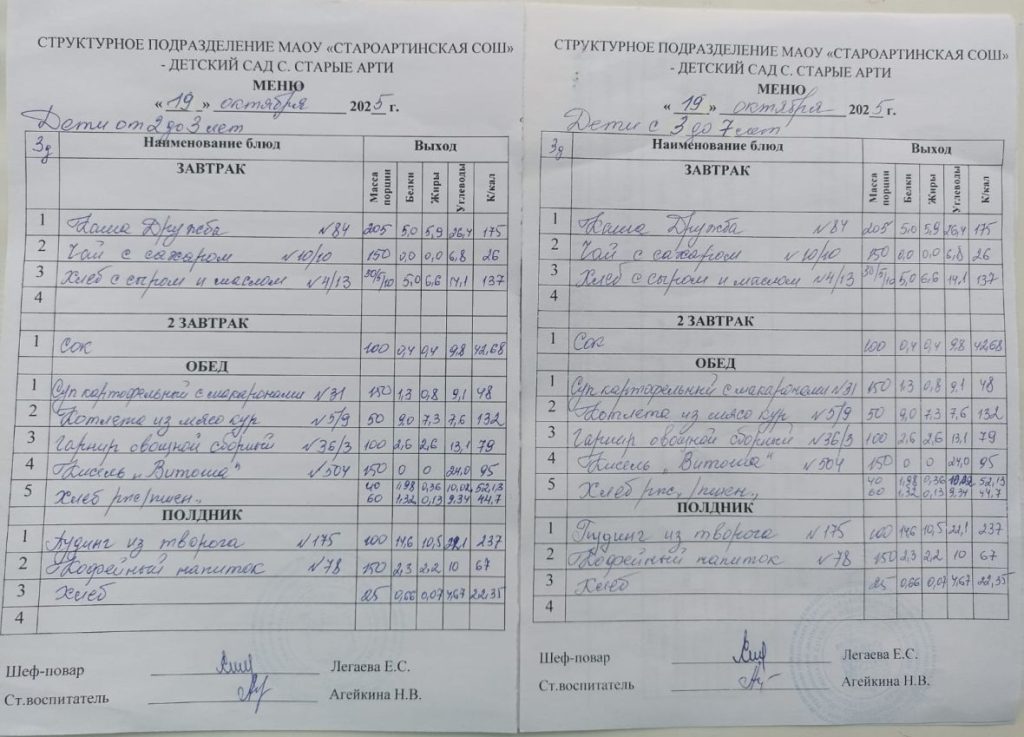 СТРУКТУРНОЕ ПОДРАЗДЕЛЕНИЕ МАОУ «СТАРОАРТИНСКАЯ СОШ»
- ДЕТСКИЙ САД С. СТАРЫЕ АРТИ
МЕНЮ
« 19 » октября 2025 г.
Дети от 2 до 3 лет
3д Наименование блюд Выход
ЗАВТРАК Масса порции Белки Жиры Углеводы К/кал
1 Каша Дружба №84 205 5,0 5,9 26,4 175
2 Чай с сахаром №10/10 150 0,0 0,0 6,8 26
3 Хлеб с сыром и маслом №4/13 30/5/10 5,0 6,6 14,1 137
4
2 ЗАВТРАК
1 Сок 100 0,4 0,4 9,8 42,68
ОБЕД
1 Суп картофельный с макаронами №31 150 1,3 0,8 9,1 48
2 Котлета из мясо кур №5/9 50 9,0 7,3 7,6 132
3 Гарнир овощной сборный №36/3 100 2,6 2,6 13,1 79
4 Кисель „Витоша" №504 150 0 0 24,0 95
5 Хлеб рж/пшен., 40 1,98 0,36 10,02 52,13
60 1,32 0,13 9,34 44,7
ПОЛДНИК
1 Пудинг из творога №175 100 14,6 10,5 22,1 237
2 Кофейный напиток №78 150 2,3 2,2 10 67
3 Хлеб 25 0,66 0,07 4,67 22,35
4
Шеф-повар Легаева Е.С.
Ст.воспитатель Агейкина Н.В.
СТРУКТУРНОЕ ПОДРАЗДЕЛЕНИЕ МАОУ «СТАРОАРТИНСКАЯ СОШ»
- ДЕТСКИЙ САД С. СТАРЫЕ АРТИ
МЕНЮ
« 19 » октября 2025 г.
Дети с 3 до 7 лет
3д Наименование блюд Выход
ЗАВТРАК Масса порции Белки Жиры Углеводы К/кал
1 Каша Дружба №84 205 5,0 5,9 26,4 175
2 Чай с сахаром №10/10 150 0,0 0,0 6,8 26
3 Хлеб с сыром и маслом №4/13 30/5/10 5,0 6,6 14,1 137
4
2 ЗАВТРАК
1 Сок 100 0,4 0,4 9,8 42,68
ОБЕД
1 Суп картофельный с макаронами №31 150 1,3 0,8 9,1 48
2 Котлета из мясо кур №5/9 50 9,0 7,3 7,6 132
3 Гарнир овощной сборный №36/3 100 2,6 2,6 13,1 79
4 Кисель „Витоша" №504 150 0 0 24,0 95
5 Хлеб рж., /пшен., 40 1,98 0,36 10,02 52,13
60 1,32 0,13 9,34 44,7
ПОЛДНИК
1 Пудинг из творога №175 100 14,6 10,5 22,1 237
2 Кофейный напиток №78 150 2,3 2,2 10 67
3 Хлеб 25 0,66 0,07 4,67 22,35
4
Шеф-повар Легаева Е.С.
Ст.воспитатель Агейкина Н.В.